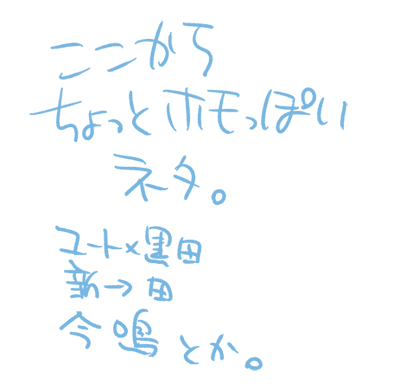 ここから
ちょっとホモっぽい
ネタ。
ユート×黒田
新→田
今鳴とか。